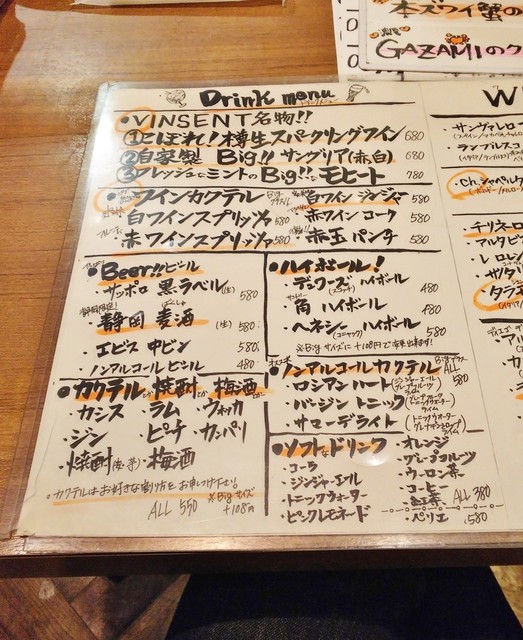 本ズワイ蟹の
GAZAMIのク
Drink menu
・VINSENT名物!!
①こぼれ!樽生スパークリングワイン 680
②自家製 Big!!サングリア(赤,白) 680
③フレッシュミントのBig!!モヒート 780
・ワインカクテル
白ワインスプリッツァ 580
赤ワインスプリッツァ 580
白ワインジンジャー 580
赤ワインコーク 580
赤玉パンチ 580
・Beer!!ビール
・サッポロ 黒ラベル(生) 580
・静岡 麦酒 (生) 580
・エビス 中ビン 580
・ノンアルコールビール 480
・ハイボール!
・デュワーズ ハイボール 480
・角 ハイボール 480
・ヘネシー ハイボール 580
※Bigサイズに+108円で出来ます!
・カクテルとか焼酎とか梅酒
・カシス ・ラム ・ウォッカ
・ジン ・ピーチ ・カンパリ
・焼酎(麦,芋) 梅酒
・カクテルはお好きな割り方をお申しつけ下さい!
ALL 550 ※Bigサイズ +108円
・ノンアルコールカクテル ALL 580
・ロシアンハート
・バージントニック
・サマーデライト
・ソフトなドリンク
・コーラ
・ジンジャーエール
・トニックウォーター
・ピンクレモネード
・オレンジ
・グレープフルーツ
・ウーロン茶
・コーヒー
・紅茶 ALL 380
・ペリエ 580
W
・サンヴァレロ
・ランブルスコ
・Ch.シャペル
・チリネーロ
・アルタビ